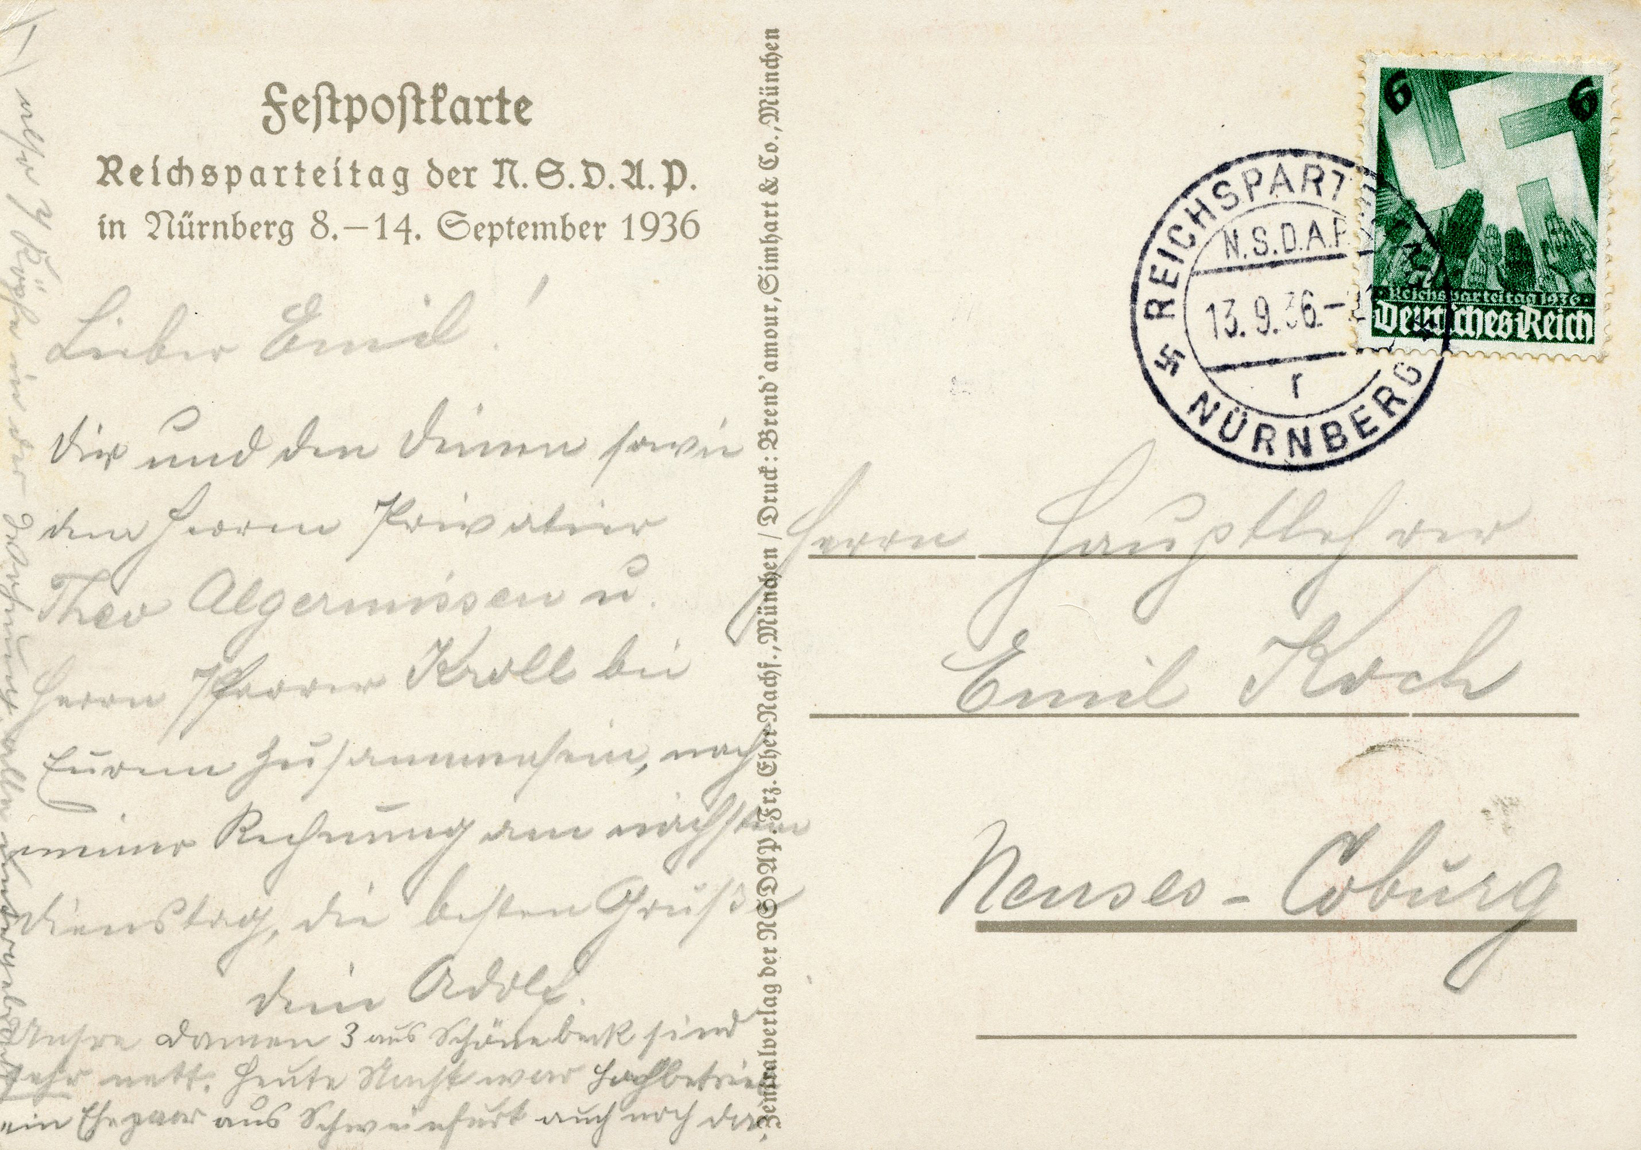 Festpostkarte
Reichsparteitag der N.S.D.A.P.
in Nürnberg 8.–14. September 1936
Lieber Emil!
Dir und den Deinen sowie
dem Herrn Privatier
Theo Algermissen u.
Herrn Pfarrer Kroll bei
Eurem Zusammensein, nach
meiner Rechnung am nächsten
Dienstag, die besten Grüße
Dein Adolf.
Unsre Damen 3 aus Schönebeck sind
sehr nett. Heute Nacht war Hochbetrieb,
ein Ehepaar aus Schweinfurt auch noch da,
also 7 Köpfe in der Wohnung, alle
Zentralverlag der NSDAP. Frz. Eher Nachf., München / Druck: Brend'amour, Simhart & Co., München
6 6
Reichsparteitag 1936
Deutsches Reich
REICHSPART
N.S.D.A.P.
13.9.36.-
r
NÜRNBERG
Herrn Hauptlehrer
Emil Koch
Neuses - Coburg